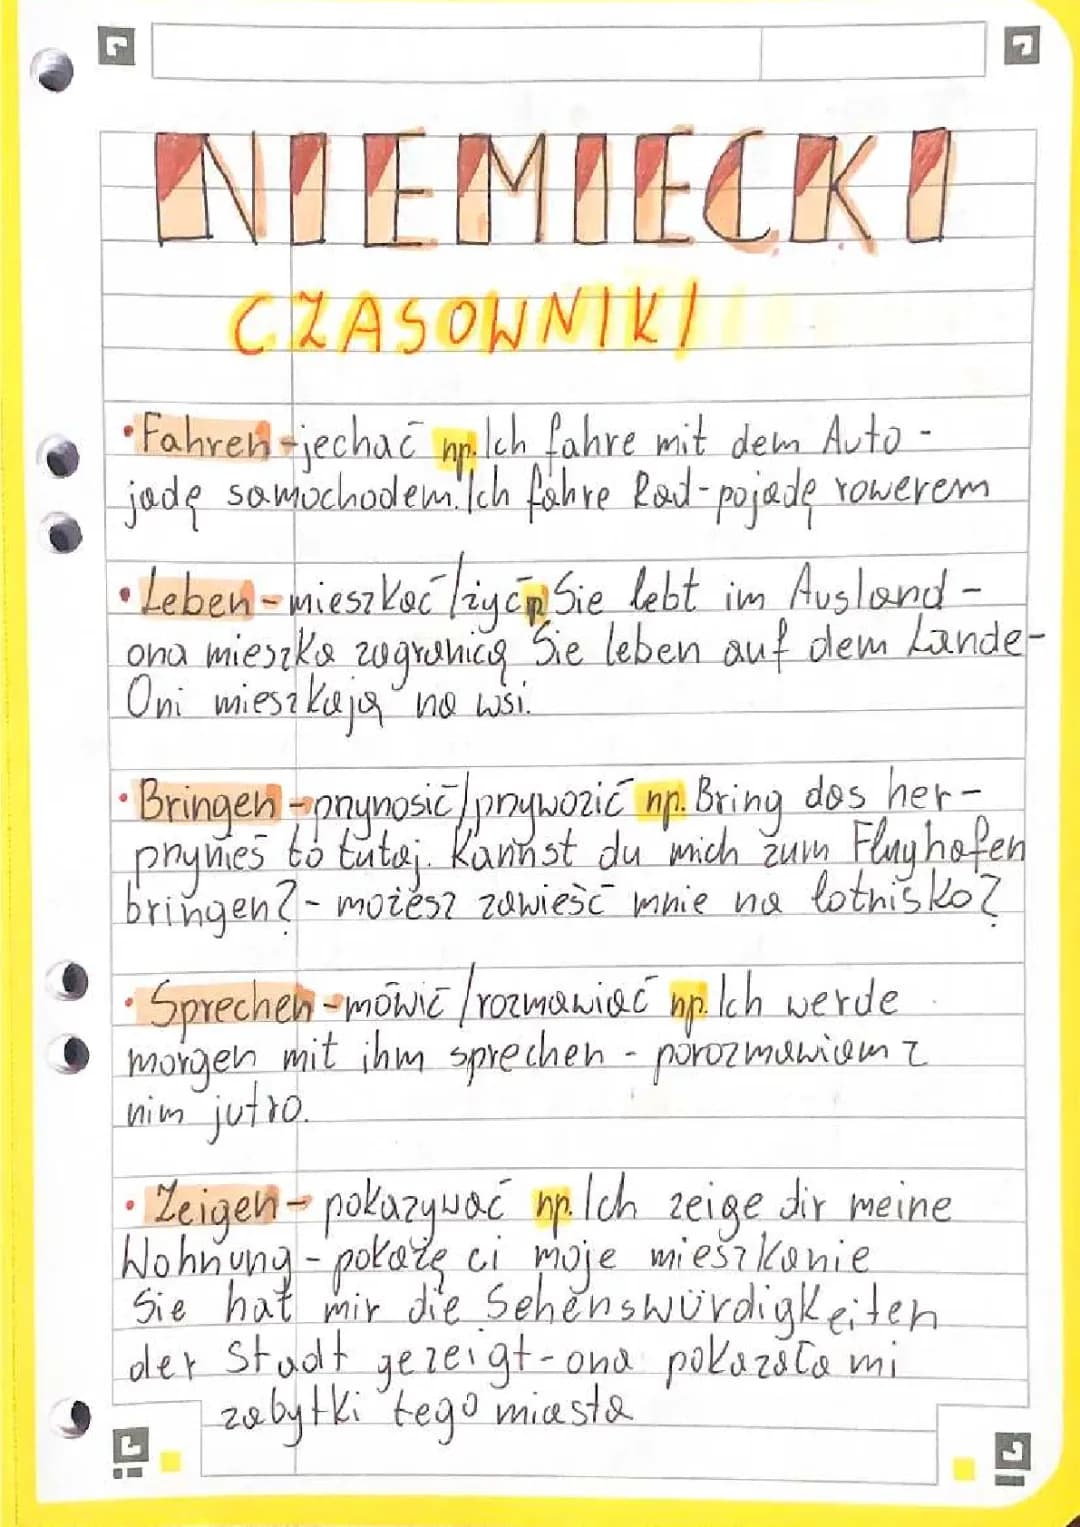 NIEMIECKI
CZASOWNIKI
• Fahren - jechać np. Ich fahre mit dem Auto -
jadę samochodem. Ich fahre Rad - pojadę rowerem
• Leben - mieszkać / żyć np Sie lebt im Ausland -
ona mieszka zagranicą Sie leben auf dem Lande -
Oni mieszkają na wsi.
• Bringen - przynosić / przywozić np. Bring das her -
przynieś to tutaj. Kannst du mich zum Flughafen
bringen? - możesz zawieść mnie na lotnisko?
• Sprechen - mówić / rozmawiać np. Ich werde
morgen mit ihm sprechen - porozmawiam z
nim jutro.
• Zeigen - pokazywać np. Ich zeige dir meine
Wohnung - pokażę ci moje mieszkanie
Sie hat mir die Sehenswürdigkeiten
der Stadt gezeigt - ona pokazała mi
zabytki tego miasta